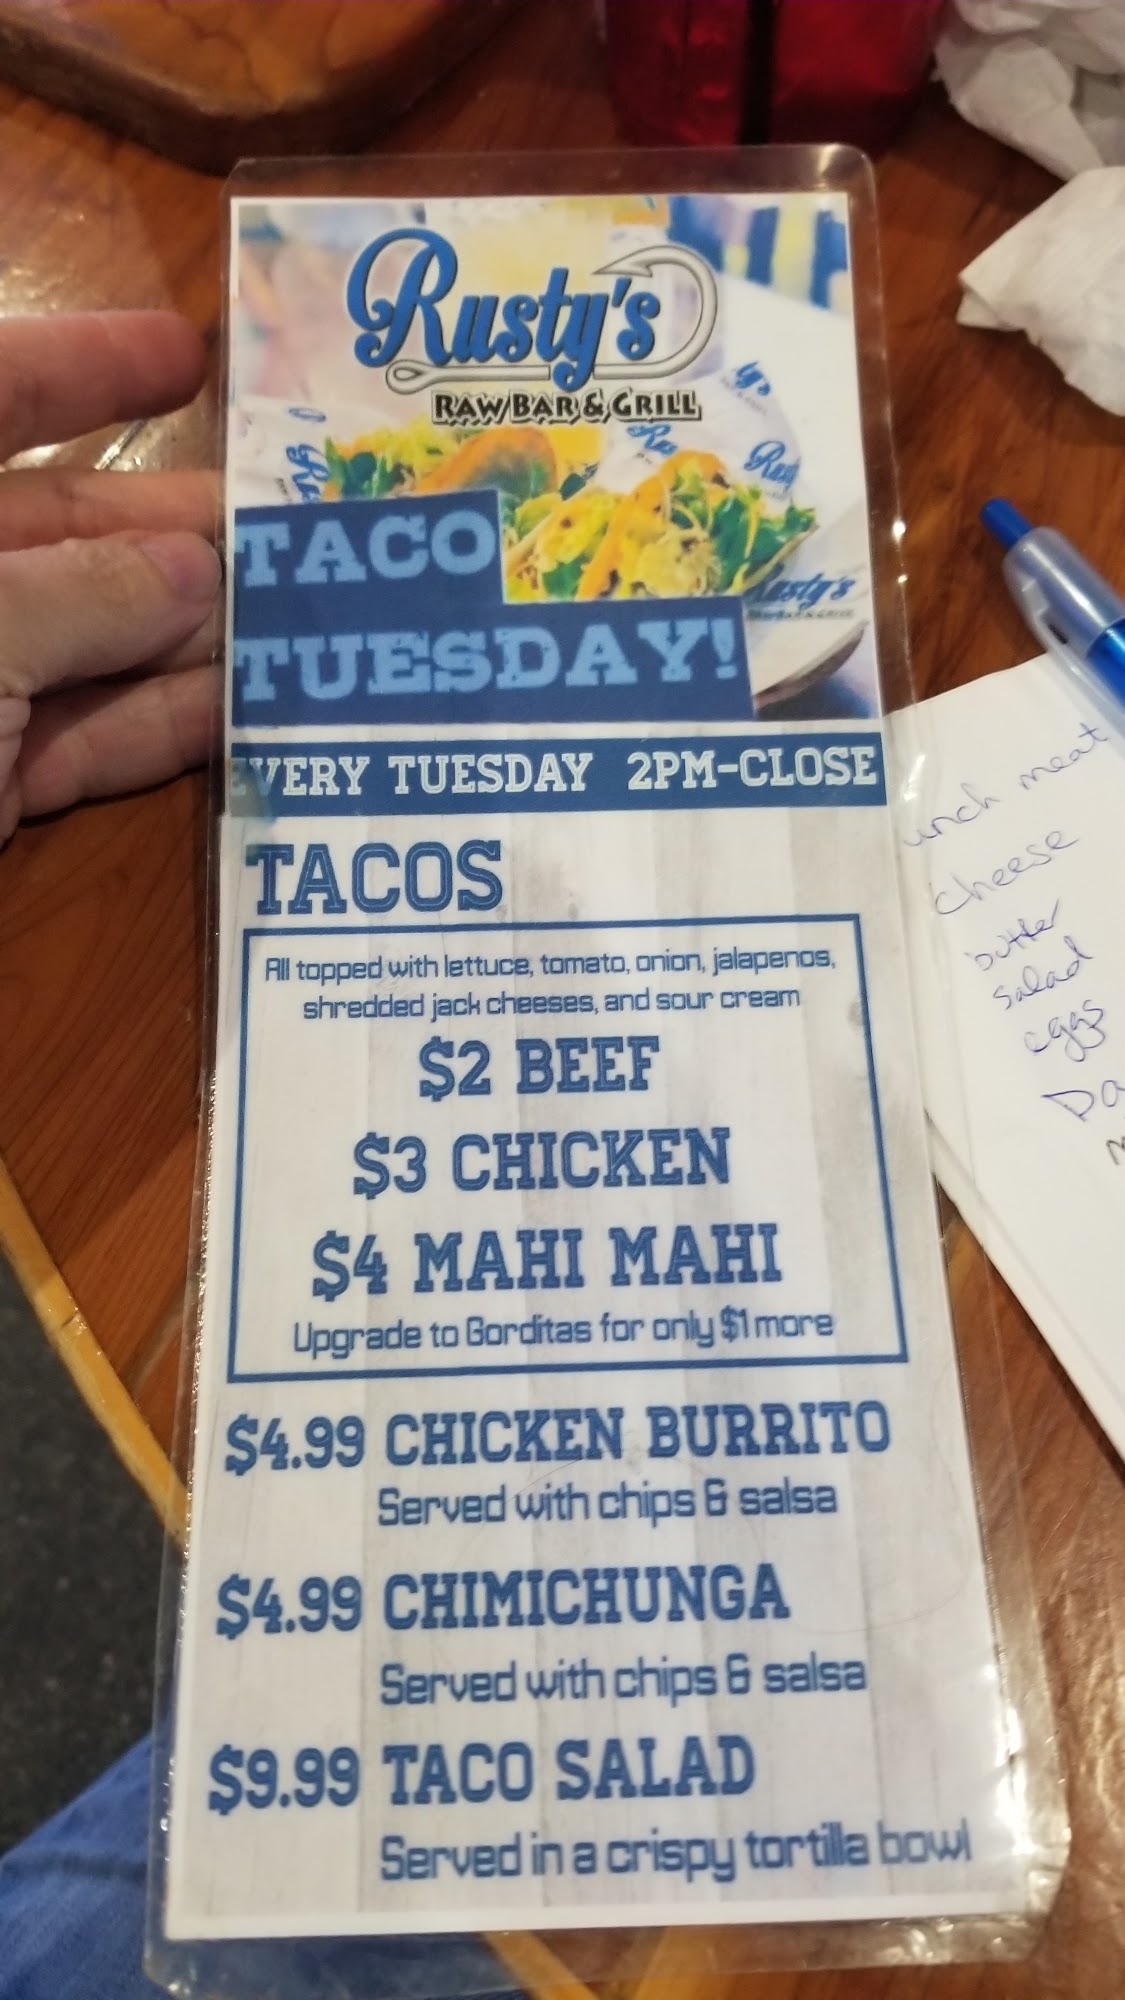 Rusty's
RAW BAR & GRILL
TACO
TUESDAY!
EVERY TUESDAY 2PM-CLOSE
TACOS
All topped with lettuce, tomato, onion, jalapenos,
shredded jack cheeses, and sour cream
$2 BEEF
$3 CHICKEN
$4 MAHI MAHI
Upgrade to Gorditas for only $1 more
$4.99 CHICKEN BURRITO
Served with chips & salsa
$4.99 CHIMICHUNGA
Served with chips & salsa
$9.99 TACO SALAD
Served in a crispy tortilla bowl
Rusty's
meat
cheese
butter
salad
eggs